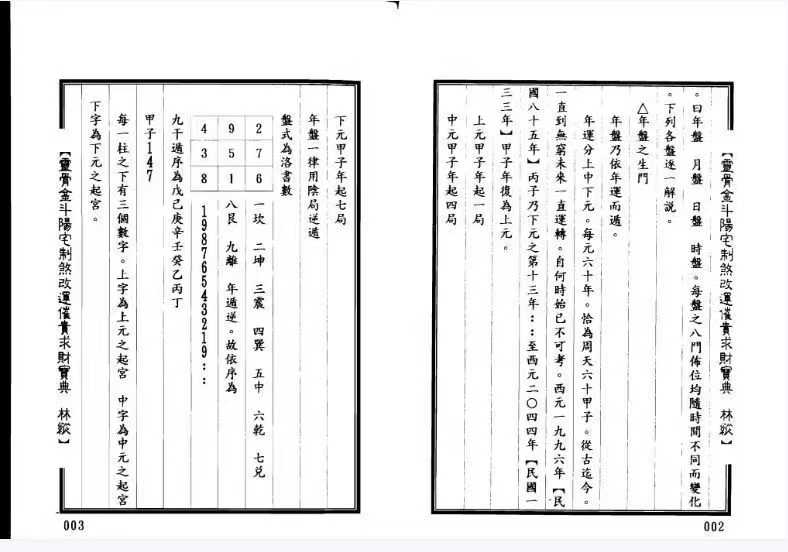 【靈骨金斗陽宅制煞改運催貴求財寶典 林縱】
。曰年盤 月盤 日盤 時盤。每盤之八門佈位均隨時間不同而變化
。下列各盤逐一解說。
△年盤之生門
年盤乃依年運而遁。
年運分上中下元。每元六十年。恰為周天六十甲子。從古迄今。
一直到無窮未來一直運轉。自何時始已不可考。西元一九九六年【民
國八十五年】丙子乃下元之第十三年::至西元二〇四四年【民國一
三三年】甲子年復為上元。
上元甲子年起一局
中元甲子年起四局
002
下元甲子年起七局
年盤一律用陰局逆遁
盤式為洛書數
4 9 2
3 5 7
8 1 6
一坎 二坤 三震 四巽 五中 六乾 七兌
八艮 九離 年遁逆。故依序為
19876543219::
九干遁序為戊己庚辛壬癸乙丙丁
甲子147
每一柱之下有三個數字。上字為上元之起宮 中字為中元之起宮
下字為下元之起宮。
【靈骨金斗陽宅制煞改運催貴求財寶典 林縱】
003